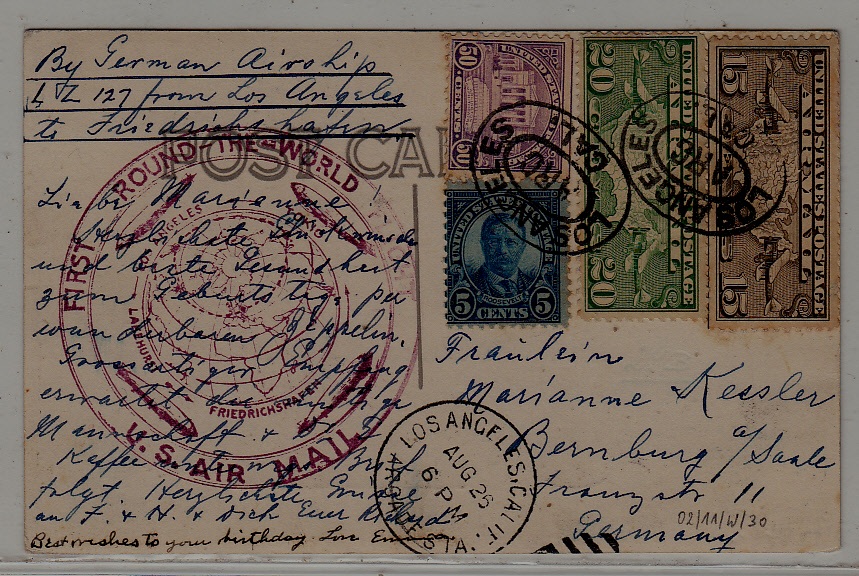 By German Airship
LZ 127 from Los Angeles
to Friedrichshafen
POST CA
FIRST ROUND-THE-WORLD
U.S. AIR MAIL
LOS ANGELES
TOKIO
LAKEHURST
FRIEDRICHSHAFEN
Liebe Marianne!
Herzlichste Glückwünsche
und beste Gesundheit
zum Geburtstag per
wunderbaren Zeppelin.
Grossartiger Empfang
erwartet die mutige
Mannschaft &
Kaffee Brief
folgt. Herzlichste Grüsse
an F. & H. & Dich Euer Richard
Best wishes to your birthday Love
50 UNITED STATES 50
LOS ANGELES CAL.
UNITED STATES POSTAGE
AIR MAIL
20 20
LOS ANGELES CAL.
UNITED STATES POSTAGE
AIR MAIL
15 15
UNITED STATES POSTAGE
5 ROOSEVELT 5
CENTS
Fräulein
Marianne Kessler
Bernburg a/Saale
Franzstr 11
Germany
02/11/W/30
LOS ANGELES, CALIF.
AUG 26
6 PM
ARCADE STA.